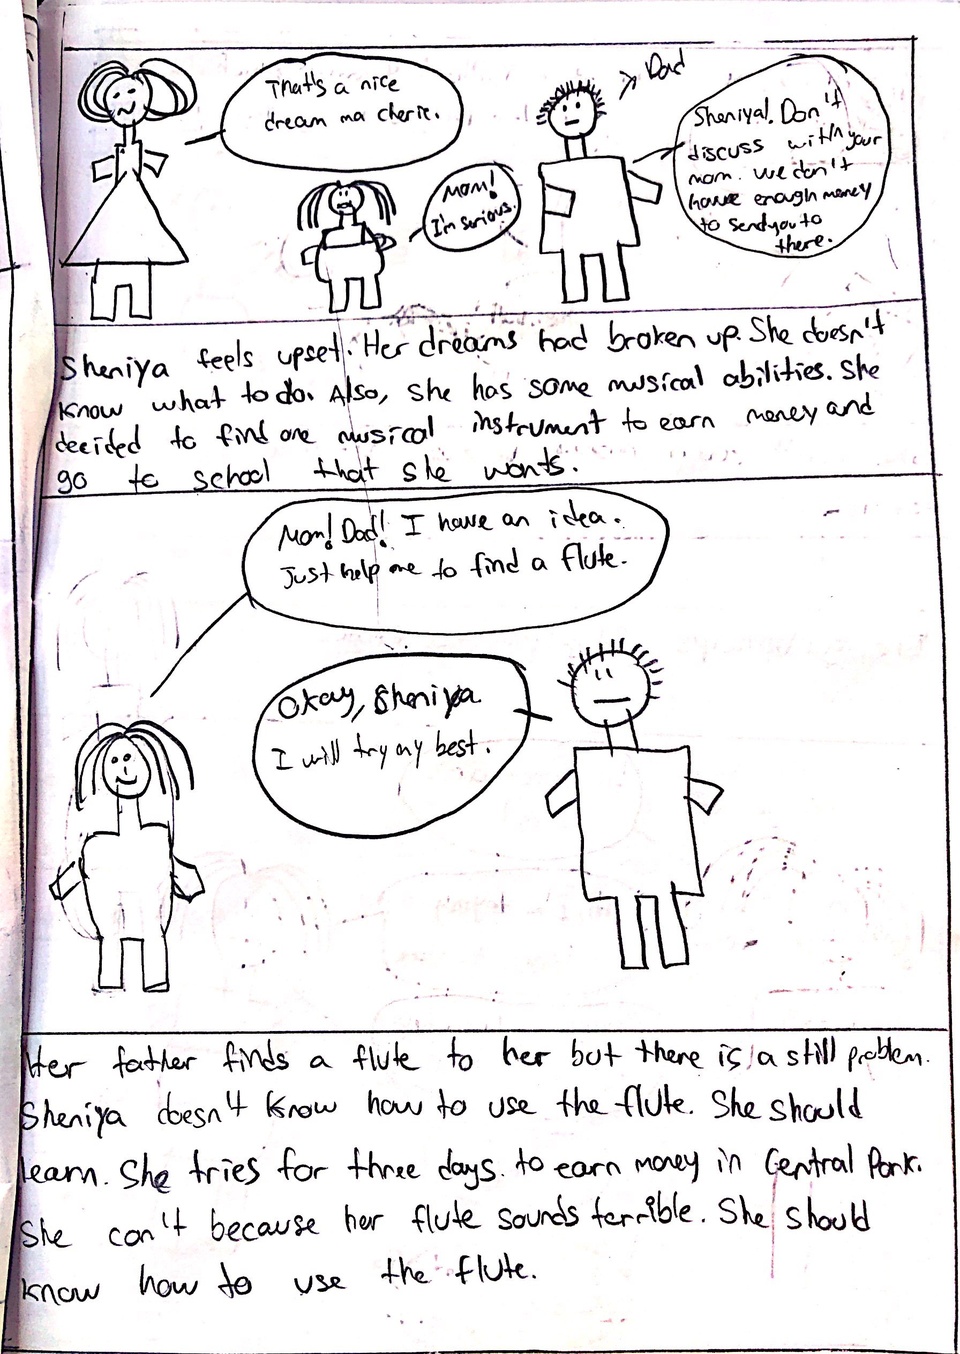 That's a nice
dream ma cherie.
Mom!
I'm serious.
Dad
Sheniya! Don't
discuss with your
mom. We don't
have enough money
to send you to
there.
Sheniya feels upset. Her dreams had broken up. She doesn't
know what to do. Also, she has some musical abilities. She
decided to find one musical instrument to earn money and
go to school that she wants.
Mom! Dad! I have an idea.
Just help me to find a flute.
Okay, Sheniya
I will try my best.
Her father finds a flute to her but there is a still problem.
Sheniya doesn't know how to use the flute. She should
learn. She tries for three days. to earn money in Central Park.
She can't because her flute sounds terrible. She should
know how to use the flute.